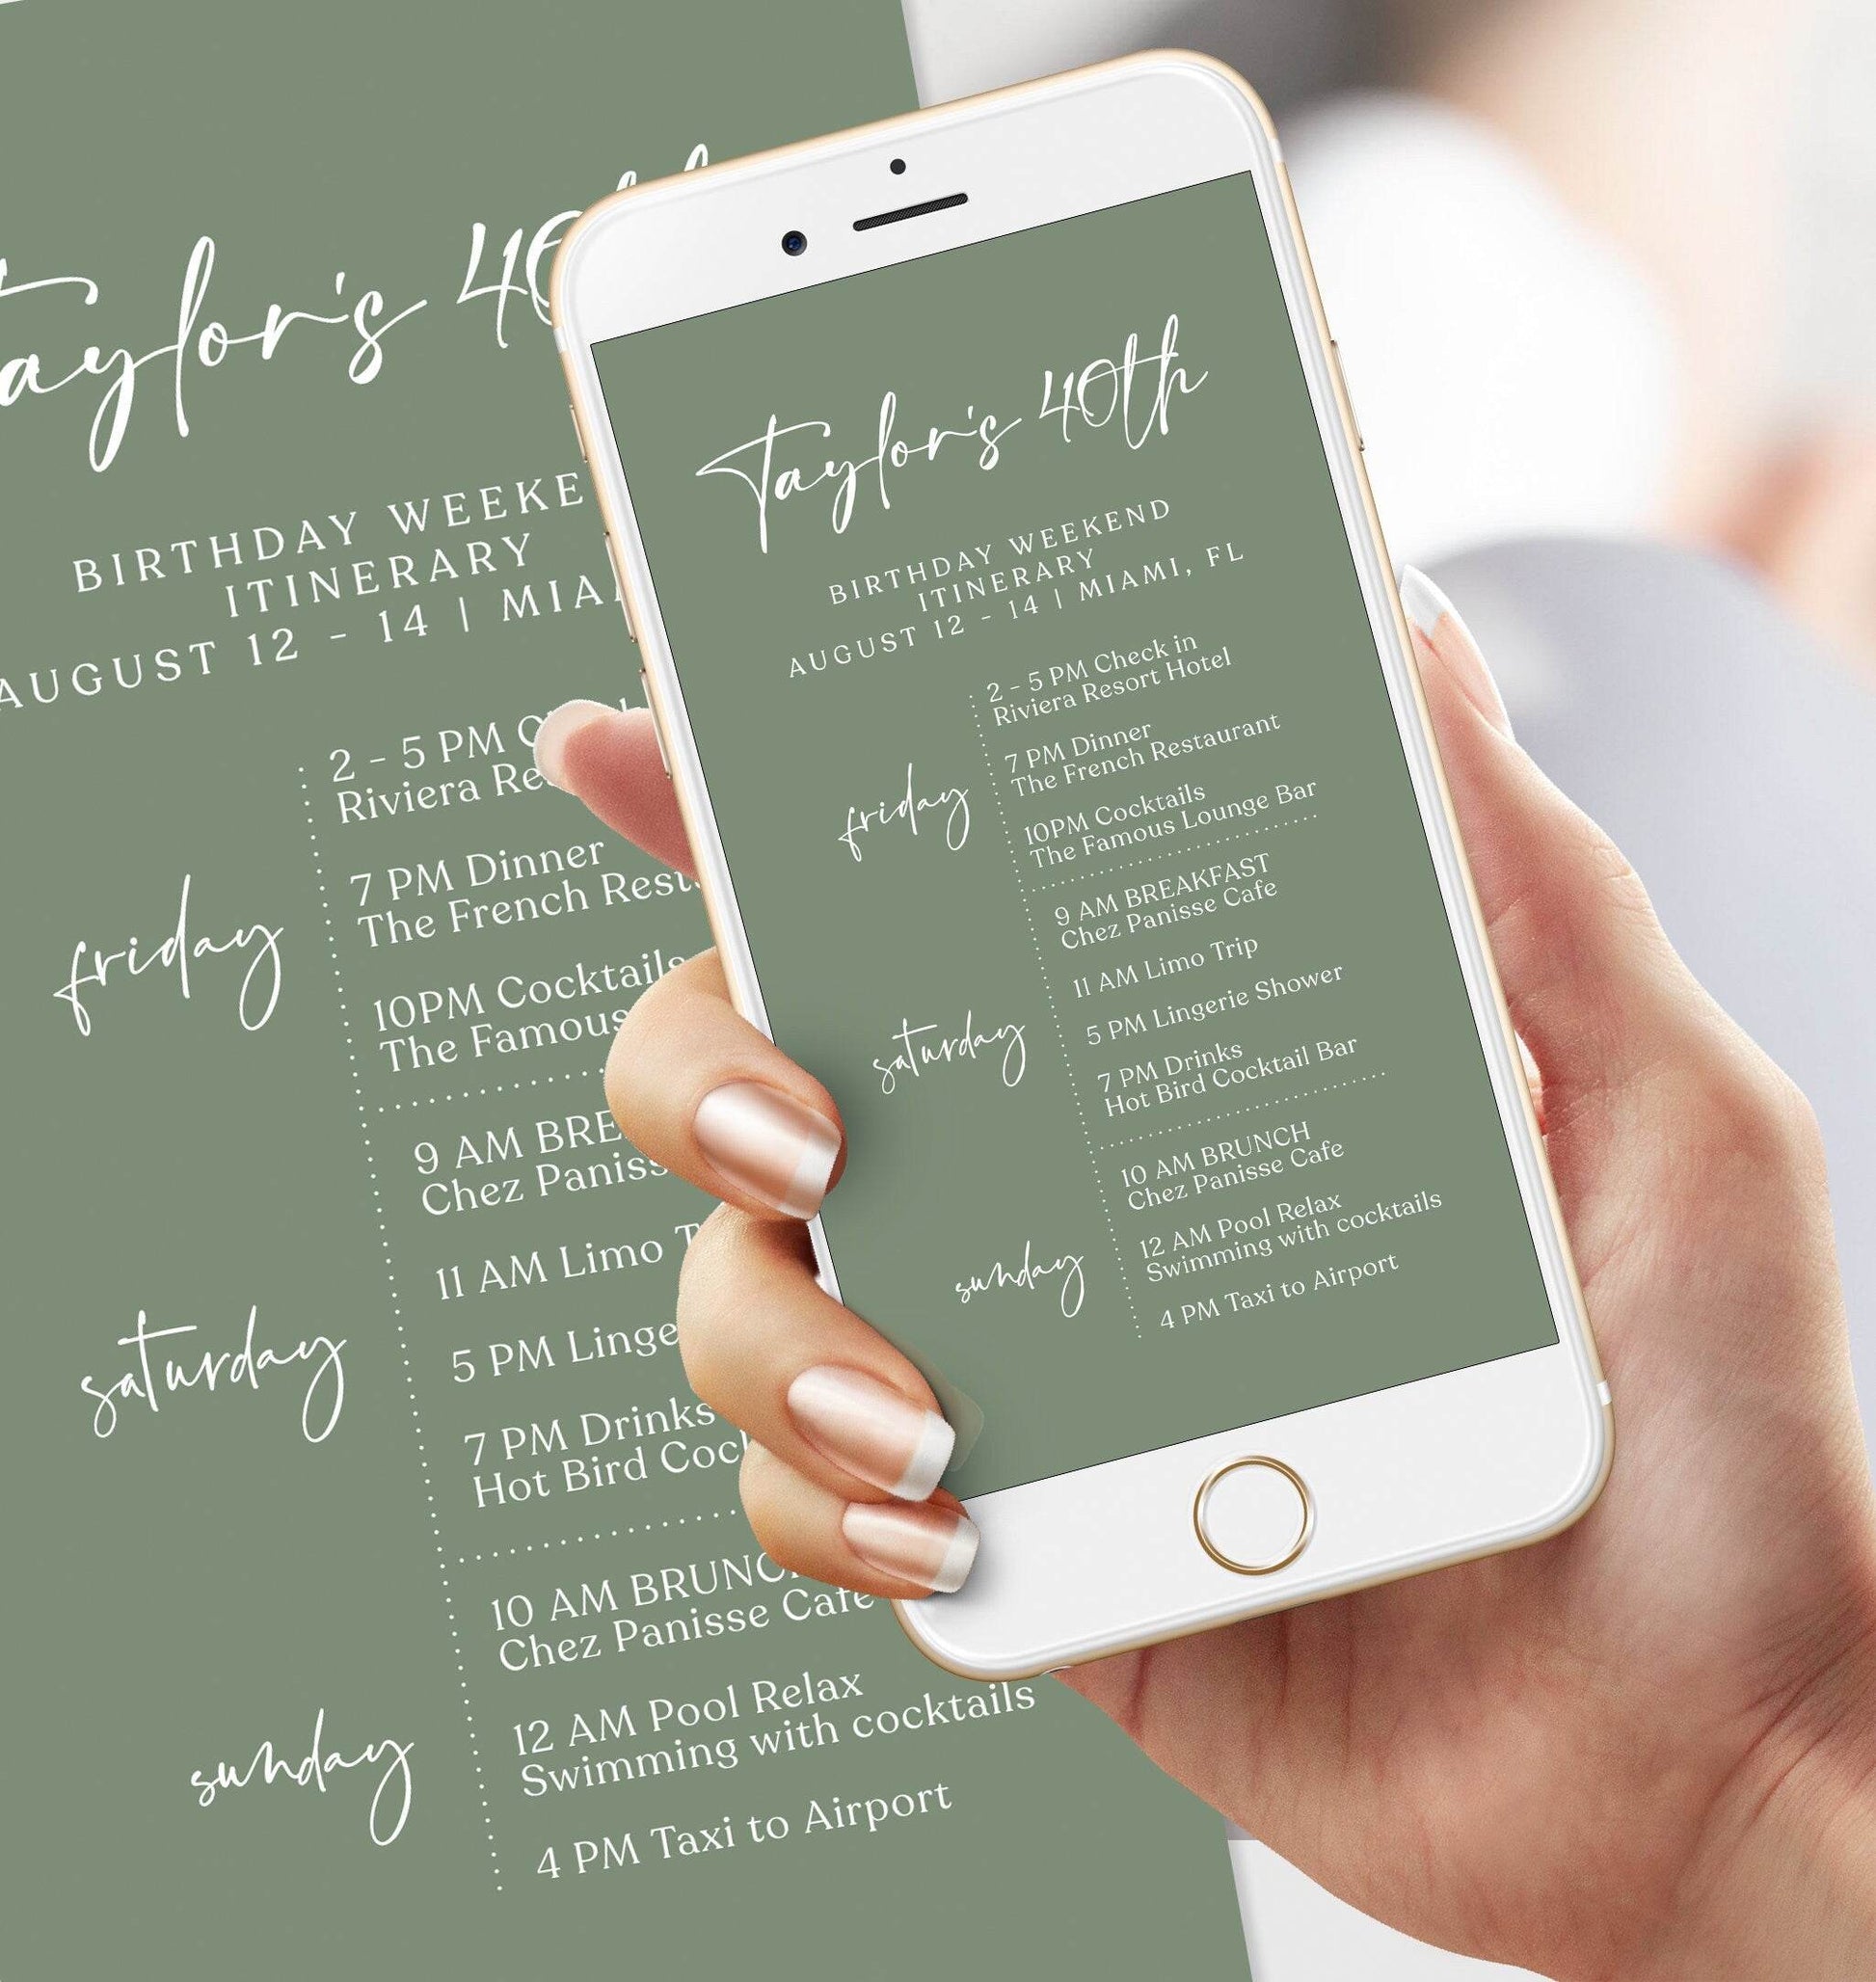 Taylor's 40
BIRTHDAY WEEKE
ITINERARY
AUGUST 12 - 14 | MIA
friday
2 - 5 PM
Riviera Re
7 PM Dinner
The French Rest
10PM Cocktails
The Famous
saturday
9 AM BRE
Chez Paniss
11 AM Limo T
5 PM Linge
7 PM Drinks
Hot Bird Coc
sunday
10 AM BRUNC
Chez Panisse Cafe
12 AM Pool Relax
Swimming with cocktails
4 PM Taxi to Airport
Taylor's 40th
BIRTHDAY WEEKEND
ITINERARY
AUGUST 12 - 14 | MIAMI, FL
friday
2 - 5 PM Check in
Riviera Resort Hotel
7 PM Dinner
The French Restaurant
10PM Cocktails
The Famous Lounge Bar
saturday
9 AM BREAKFAST
Chez Panisse Cafe
11 AM Limo Trip
5 PM Lingerie Shower
7 PM Drinks
Hot Bird Cocktail Bar
sunday
10 AM BRUNCH
Chez Panisse Cafe
12 AM Pool Relax
Swimming with cocktails
4 PM Taxi to Airport